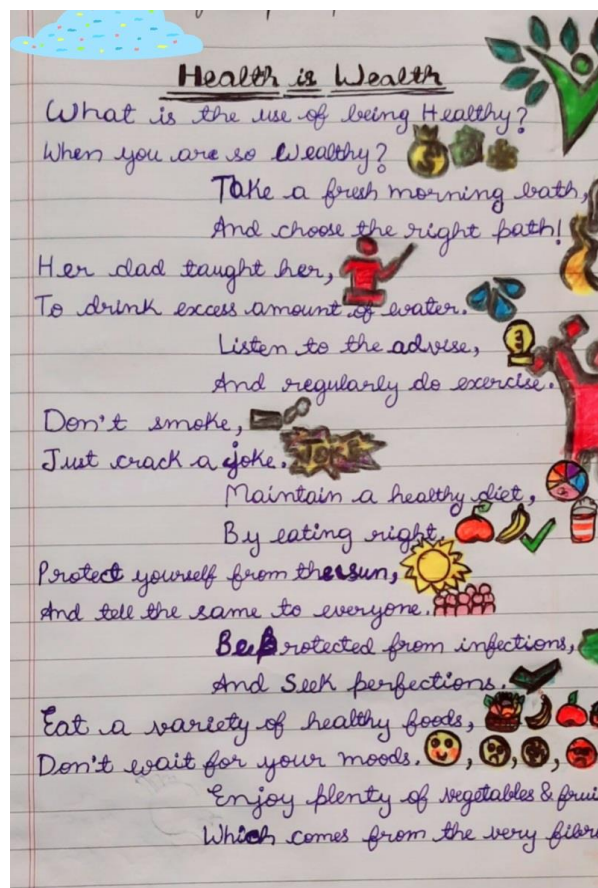 Health is Wealth
What is the use of being Healthy?
When you are so Wealthy?
Take a fresh morning bath,
And choose the right path!
Her dad taught her,
To drink excess amount of water.
Listen to the advise,
And regularly do exercise.
Don't smoke,
Just crack a joke. JOKE
Maintain a healthy diet,
By eating right.
Protect yourself from the sun,
And tell the same to everyone.
Be Protected from infections,
And Seek perfections.
Eat a variety of healthy foods,
Don't wait for your moods.
Enjoy plenty of vegetables &
Which comes from the very